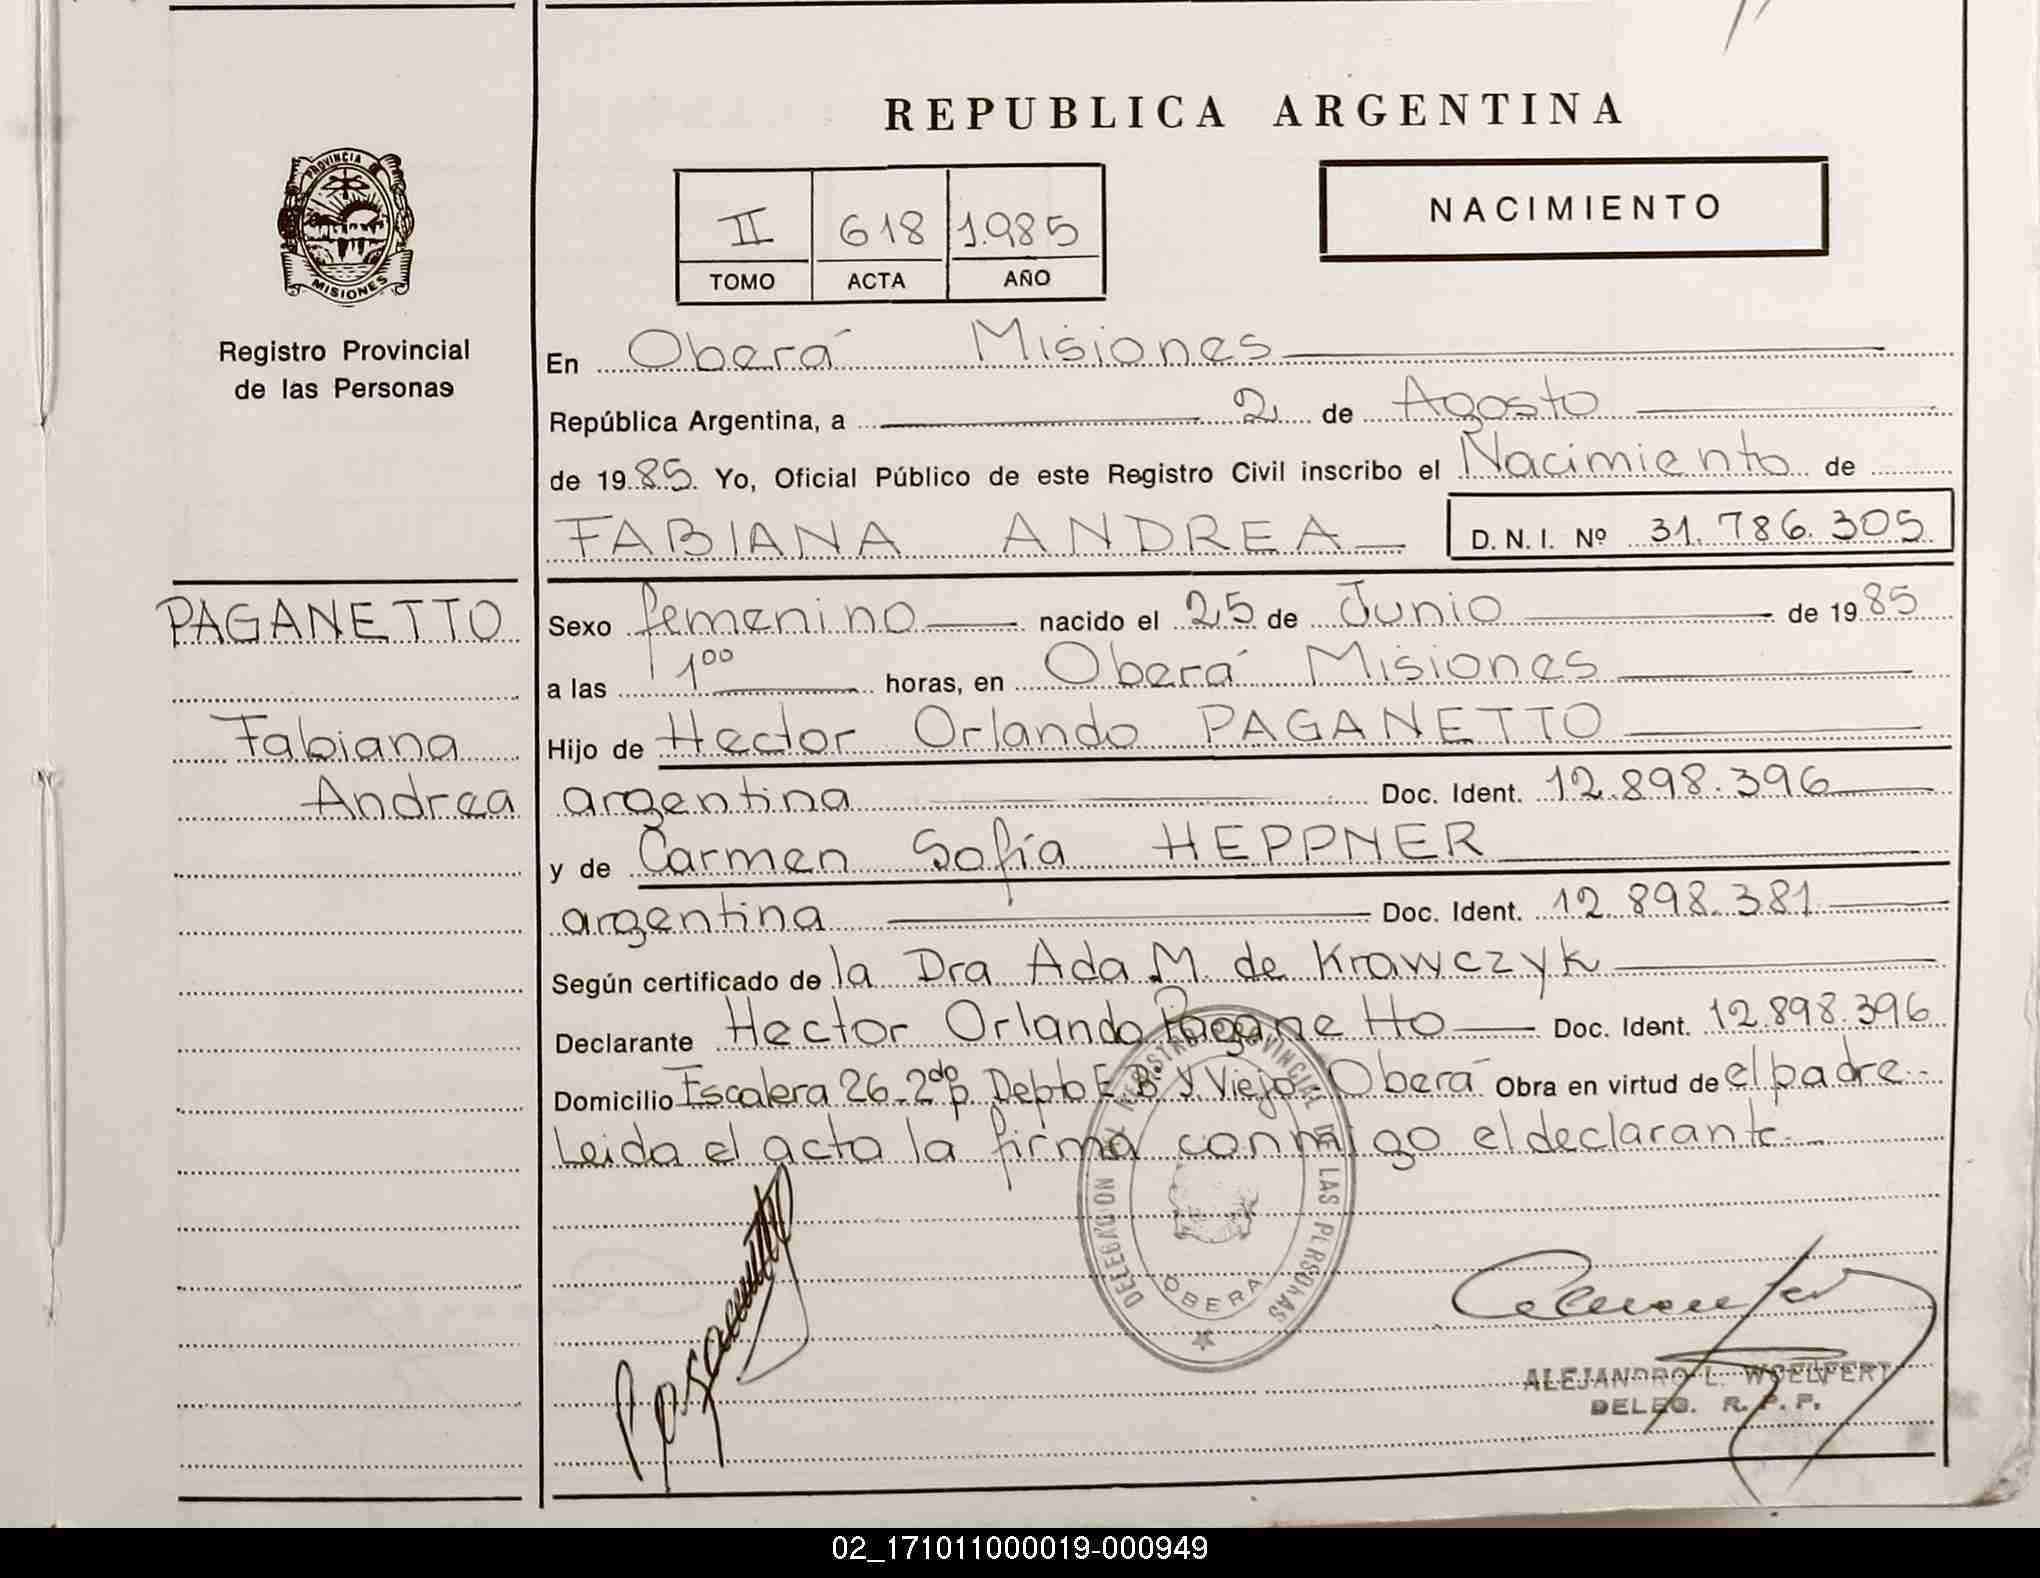 REPUBLICA ARGENTINA
PROVINCIA
MISIONES
Registro Provincial
de las Personas
II 618 1.985
TOMO ACTA AÑO
NACIMIENTO
En Oberá Misiones
República Argentina, a 2 de Agosto
de 1985. Yo, Oficial Público de este Registro Civil inscribo el Nacimiento de
FABIANA ANDREA D. N. I. Nº 31.786.305
PAGANETTO
Fabiana
Andrea
Sexo femenino nacido el 25 de Junio de 1985
a las 1⁰⁰ horas, en Oberá Misiones
Hijo de Hector Orlando PAGANETTO
argentina Doc. Ident. 12.898.396
y de Carmen Sofía HEPPNER
argentina Doc. Ident. 12.898.381
Según certificado de la Dra Ada M. de Krawczyk
Declarante Hector Orlando Paganetto Doc. Ident. 12.898.396
Domicilio Escalera 26-2do p Depto E B. Y. Viejo-Oberá Obra en virtud de el padre.-
Leida el acta la firma conmigo el declarante.-
DELEGACION DEL REGISTRO PROVINCIAL DE LAS PERSONAS
OBERA
ALEJANDRO L. WOELFERT
DELEG. R. P. P.
02_171011000019-000949